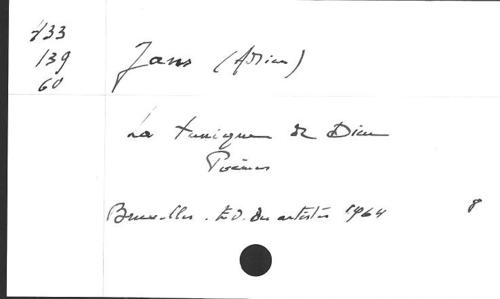 433
139
60
Jans (Adrien)
La tunique de Dieu
Poèmes
Bruxelles. Ed. des artistes 1964 8